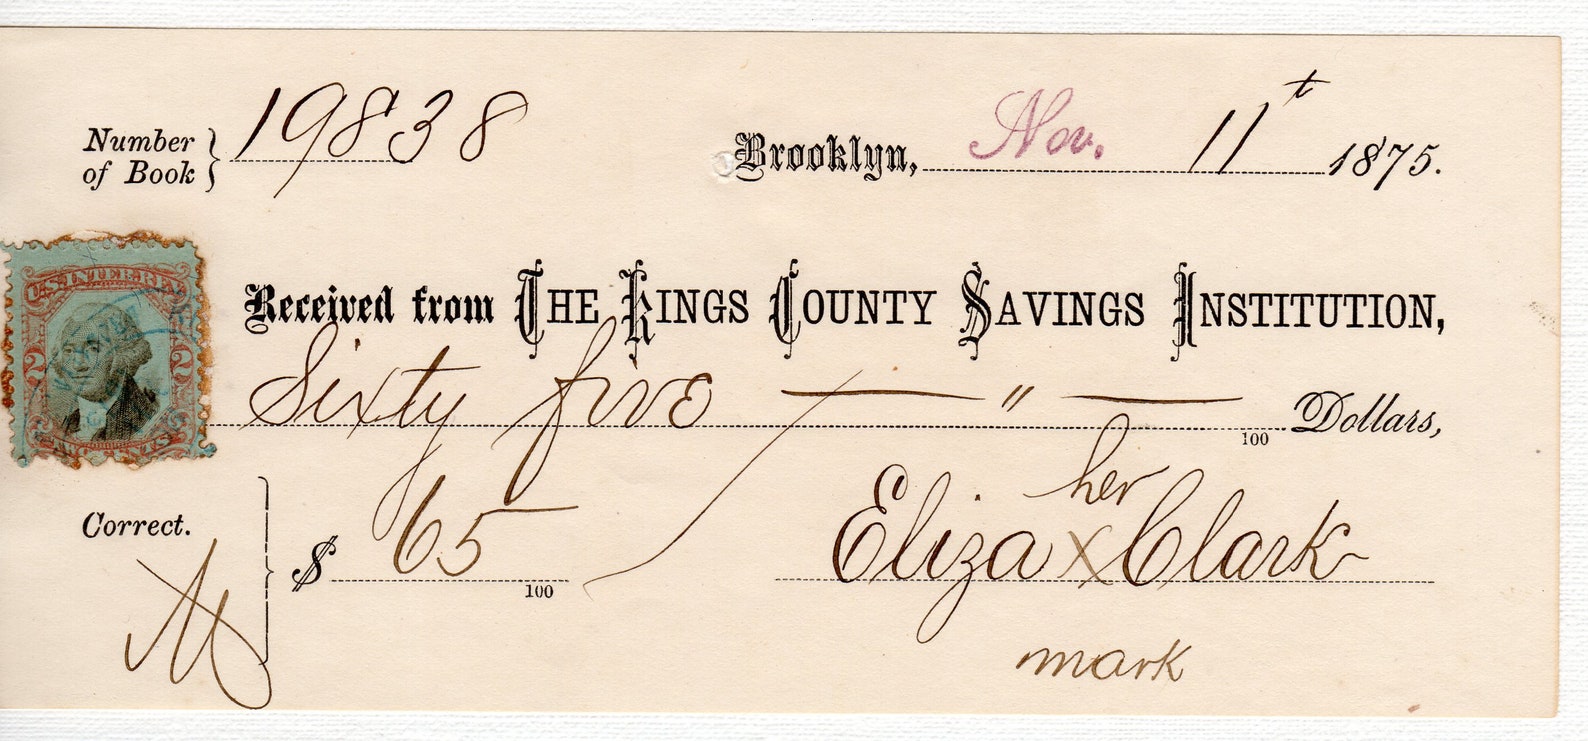 Number of Book } 19838
Brooklyn, Nov. 11t 1875.
U.S. INTER. REV.
2 2
TWO CENTS
Received from THE KINGS COUNTY SAVINGS INSTITUTION,
Sixty five — " — 100 Dollars,
Correct.
$ 65 100
her
Eliza x Clark
mark